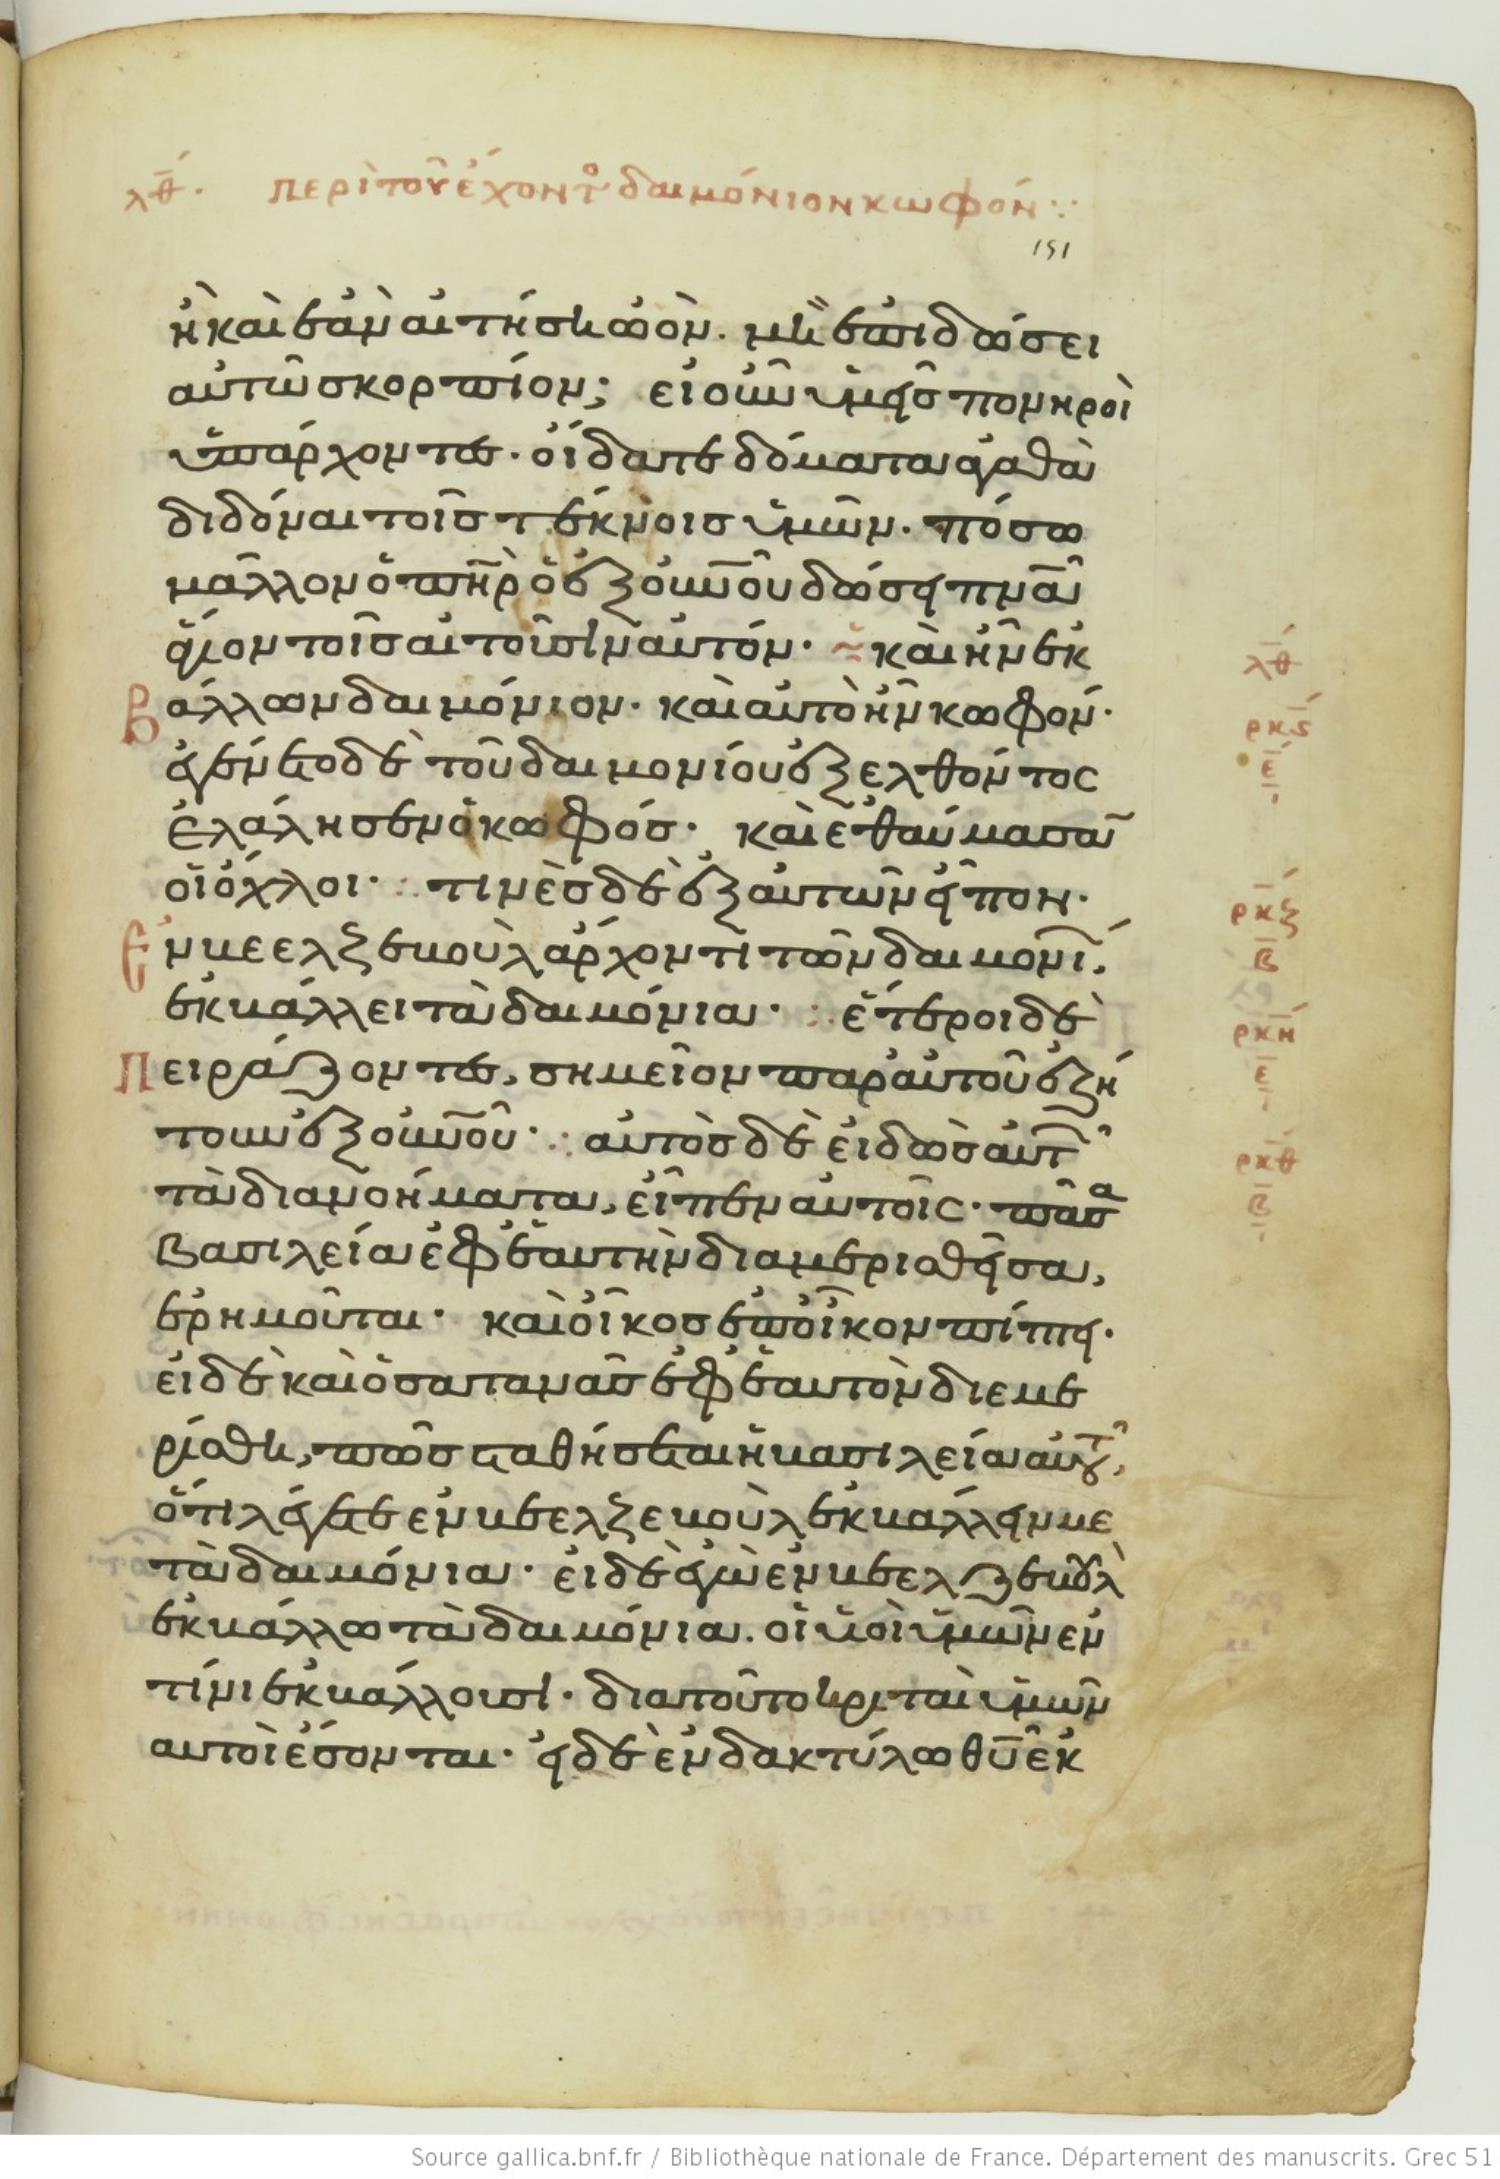 λθ. περὶ τοῦ ἔχοντο δαιμόνιον κωφόν:·
151
ἢ καὶ ἐὰν αἰτήση ὠὸν. μὴ ἐπιδώσει
αὐτῶ σκορπίον; εἰ οὖν ὑμεῖς πονηροὶ
ὑπάρχοντες. οἴδατε δόματα ἀγαθὰ
διδόναι τοῖς τέκνοις ὑμῶν. πόσω
μᾶλλον ὁ πηρ ὁ ἐξ οὐνοῦ δώσει πνα
ἅγιον τοῖς αἰτοῦσιν αὐτόν. καὶ ἦν ἐκ
βάλλων δαιμόνιον. καὶ αὐτὸ ἦν κωφόν.
ἐγένετο δὲ τοῦ δαιμονίου ἐξελθόντος
ἐλάλησεν ὁ κωφός. καὶ ἐθαύμασαν
οἱ ὄχλοι. τινὲς δὲ ἐξ αὐτῶν εἶπον.
Ἐν βεελζεβοὺλ ἄρχοντι τῶν δαιμονί,
ἐκβάλλει τὰ δαιμόνια. ἕτεροι δὲ
Πειράζοντες, σημεῖον παρ αὐτοῦ ἐζή
τουν ἐξ οὐνοῦ. αὐτὸς δὲ εἰδὼς αὐτ
τὰ διανοήματα, εἶπεν αὐτοῖς. πᾶσα
βασιλεία ἐφ ἑαυτὴν διαμερισθεῖσα,
ἐρημοῦται. καὶ οἶκος ἐπὶ οἶκον πίπτει.
εἰ δὲ καὶ ὁ σατανᾶς ἐφ ἑαυτὸν διεμε
ρίσθη, πῶς σταθήσεται ἡ βασιλεία αὐτοῦ,
ὅτι λέγετε ἐν βεελζεβοὺλ ἐκβάλλειν με
τὰ δαιμόνια. εἰ δὲ ἐγὼ ἐν βεελζεβοὺλ
ἐκβάλλω τὰ δαιμόνια. οἱ υἱοὶ ὑμῶν ἐν
τίνι ἐκβάλλουσι. διατοῦτο κριταὶ ὑμῶν
αὐτοὶ ἔσονται. εἰ δὲ ἐν δακτύλω θυ ἐκ
λθ
ρκς
ε
ρκζ
β
ρκη
ε
ρκθ
β
Source gallica.bnf.fr / Bibliothèque nationale de France. Département des manuscrits. Grec 51